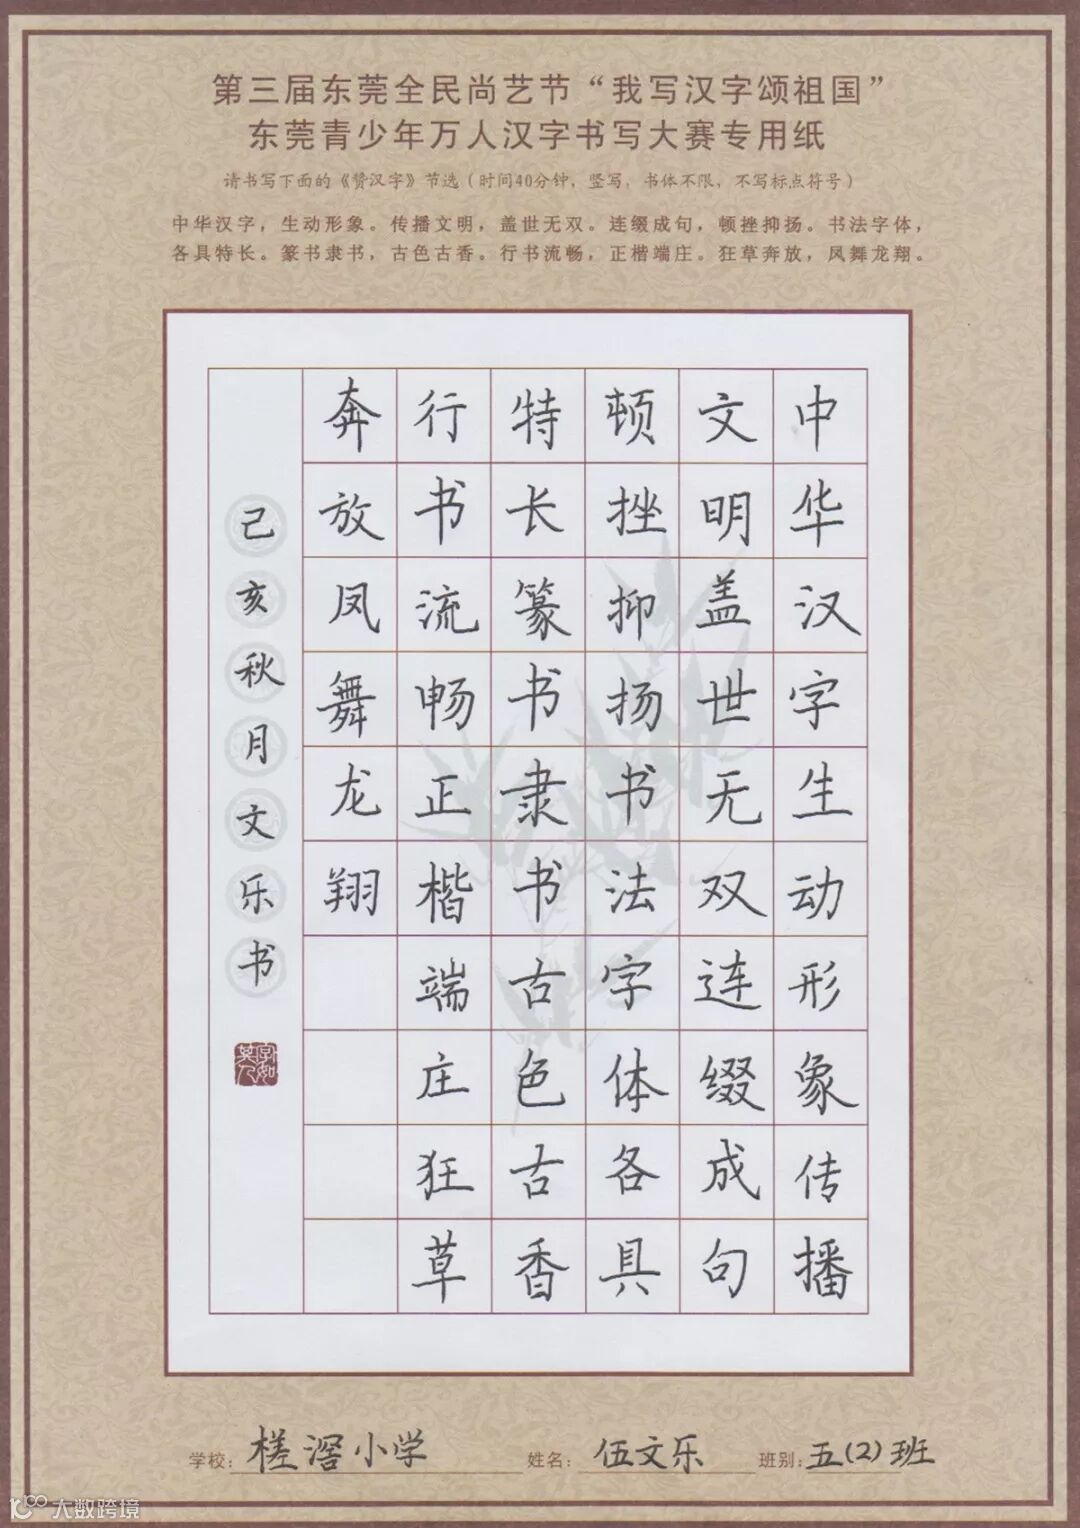 第三届东莞全民尚艺节“我写汉字颂祖国”
东莞青少年万人汉字书写大赛专用纸
请书写下面的《赞汉字》节选（时间40分钟，竖写，书体不限，不写标点符号）
中华汉字，生动形象。传播文明，盖世无双。连缀成句，顿挫抑扬。书法字体，
各具特长。篆书隶书，古色古香。行书流畅，正楷端庄。狂草奔放，凤舞龙翔。
中华汉字生动形象传播
文明盖世无双连缀成句
顿挫抑扬书法字体各具
特长篆书隶书古色古香
行书流畅正楷端庄狂草
奔放凤舞龙翔
己亥秋月文乐书
字如其人
学校：槎滘小学 姓名：伍文乐 班别：五(2)班
大数跨境